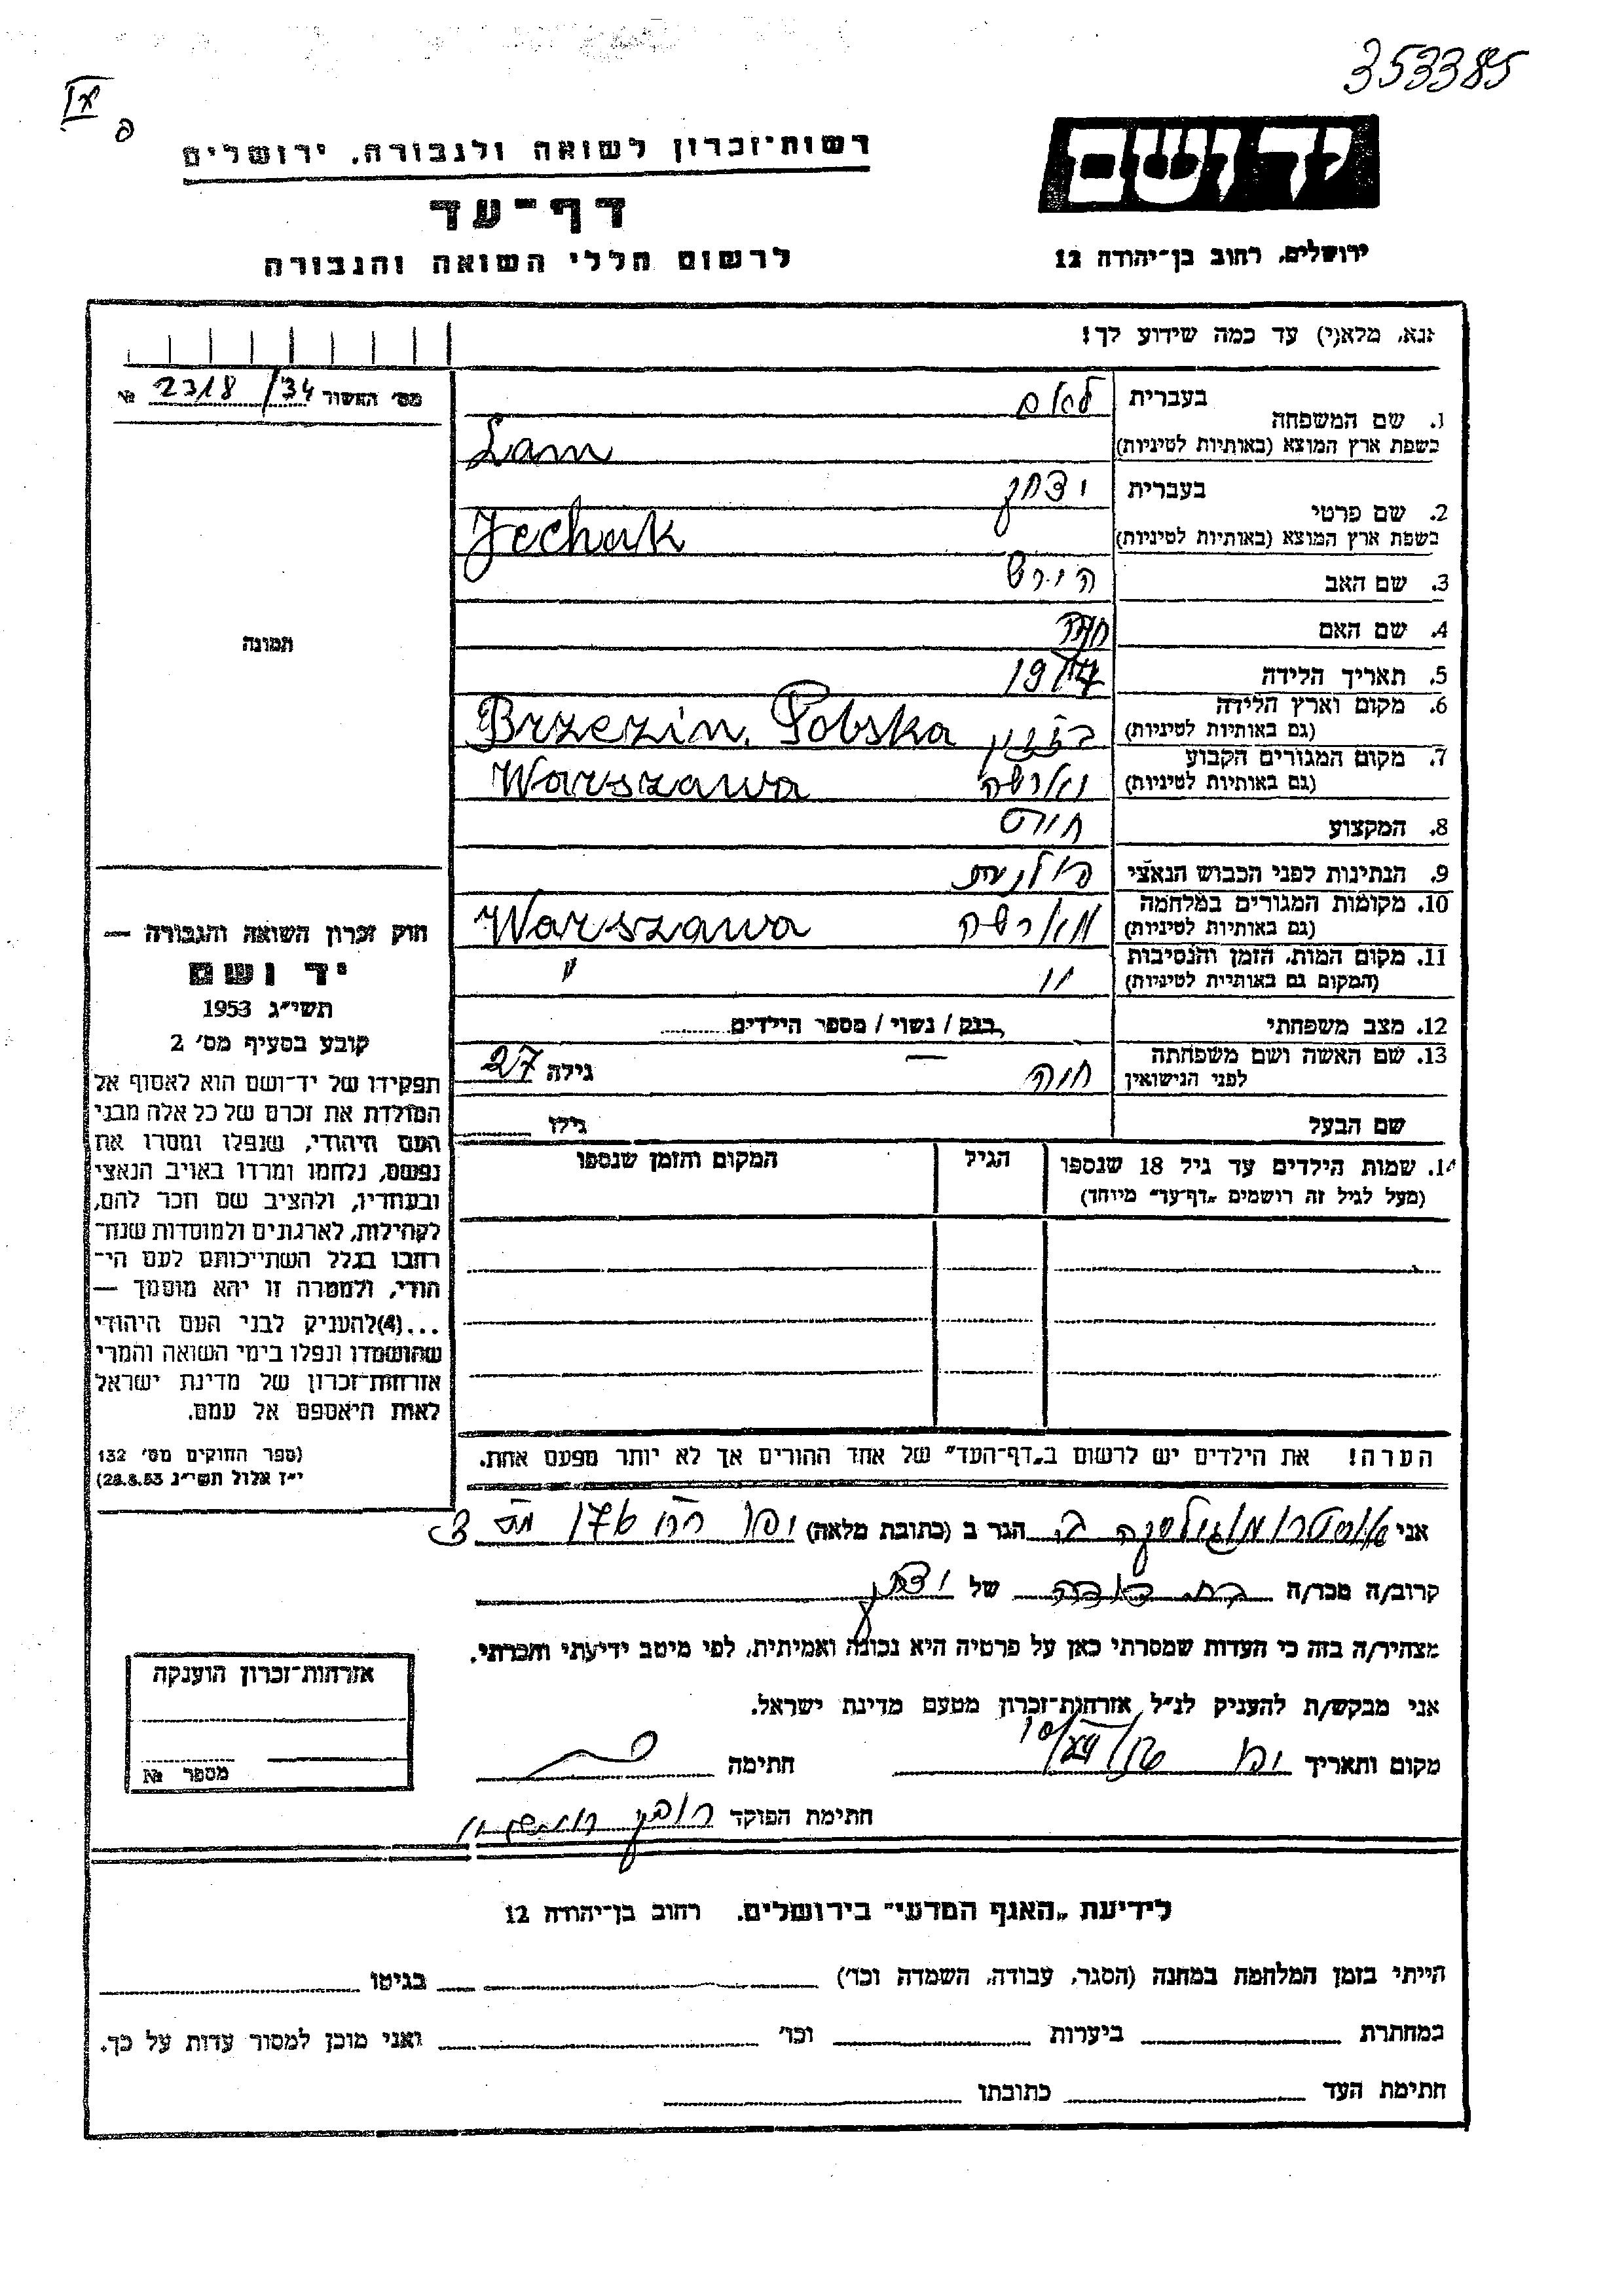 353385
רשות־זכרון לשואה ולגבורה, ירושלים
יד ושם
דף־עד
לרשום חללי השואה והגבורה
ירושלים, רחוב בן־יהודה 12
אנא, מלא(י) עד כמה שידוע לך!
מס׳ האשור 2318/34 №
1. שם המשפחה
בעברית לאם
בשפת ארץ המוצא (באותיות לטיניות) Lam
2. שם פרטי
בעברית יצחק
בשפת ארץ המוצא (באותיות לטיניות) Jechak
3. שם האב הירש
4. שם האם
5. תאריך הלידה
6. מקום וארץ הלידה
(גם באותיות לטיניות) Brzezin, Polska
7. מקום המגורים הקבוע
(גם באותיות לטיניות) ווארשה Warszawa
8. המקצוע חייט
9. הנתינות לפני הכבוש הנאצי פולנית
10. מקומות המגורים במלחמה
(גם באותיות לטיניות) ווארשה Warszawa
11. מקום המות, הזמן והנסיבות
(המקום גם באותיות לטיניות) " "
12. מצב משפחתי רווק / נשוי / מספר הילדים
13. שם האשה ושם משפחתה
לפני הנישואין חוה — גילה 27
שם הבעל גילו
14. שמות הילדים עד גיל 18 שנספו
(מעל לגיל זה רושמים „דף־עד״ מיוחד)
הגיל
המקום והזמן שנספו
הערה! את הילדים יש לרשום ב„דף־העד״ של אחד ההורים אך לא יותר מפעם אחת.
תמונה
חוק זכרון השואה והגבורה —
יד ושם
תשי״ג 1953
קובע בסעיף מס׳ 2
תפקידו של יד־ושם הוא לאסוף אל
המולדת את זכרם של כל אלה מבני
העם היהודי, שנפלו ומסרו את
נפשם, נלחמו ומרדו באויב הנאצי
ובעוזריו, ולהציב שם וזכר להם,
לקהילות, לארגונים ולמוסדות שנח־
רבו בגלל השתייכותם לעם הי־
הודי, ולמטרה זו יהא מוסמך —
...(4) להעניק לבני העם היהודי
שהושמדו ונפלו בימי השואה והמרי
אזרחות־זכרון של מדינת ישראל
לאות היאספם אל עמם.
(ספר החוקים מס׳ 132
י״ז אלול תשי״ג 28.8.53)
אני הגר ב (כתובת מלאה) יפו
קרוב/ה מכר/ה של יצחק
מצהיר/ה בזה כי העדות שמסרתי כאן על פרטיה היא נכונה ואמיתית, לפי מיטב ידיעתי והכרתי.
אני מבקש/ת להעניק לנ״ל אזרחות־זכרון מטעם מדינת ישראל.
מקום ותאריך יפו חתימה
חתימת הפוקד
אזרחות־זכרון הוענקה
מספר №
לידיעת „האגף המדעי״ בירושלים, רחוב בן־יהודה 12
הייתי בזמן המלחמה במחנה (הסגר, עבודה, השמדה וכו׳) בגיטו
במחתרת ביערות וכו׳ ואני מוכן למסור עדות על כך.
חתימת העד כתובתו